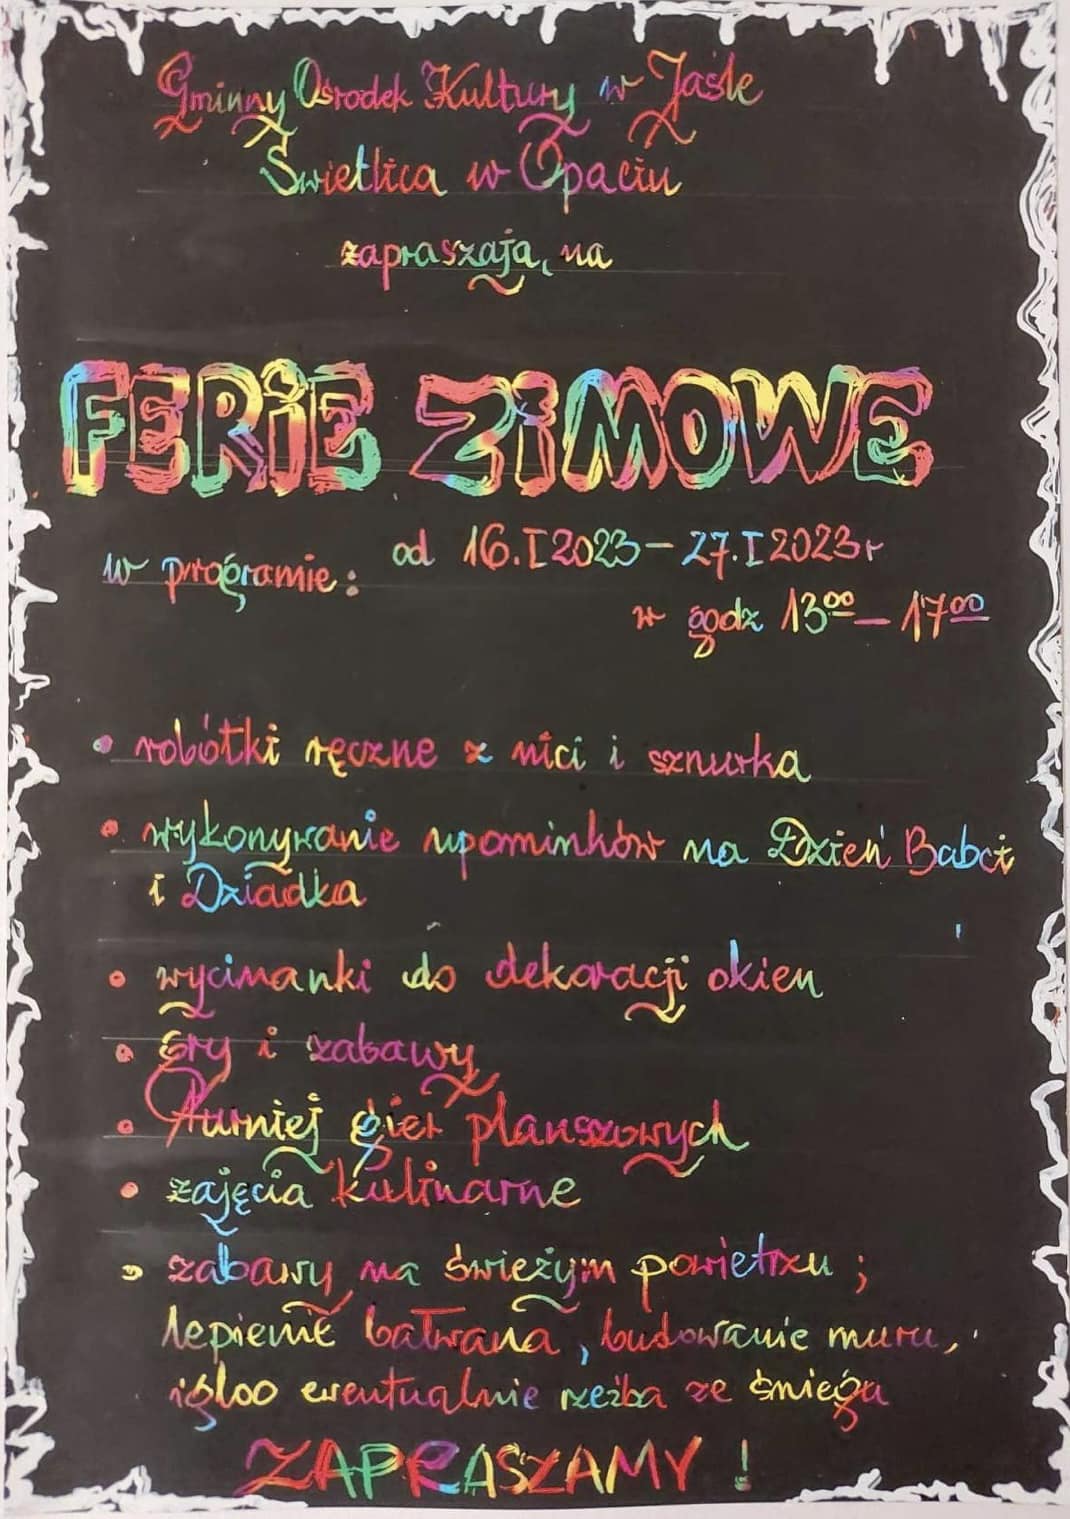 Gminny Ośrodek Kultury w Jaśle
Świetlica w Opaciu
zapraszają na
FERIE ZIMOWE
od 16.I 2023 - 27.I 2023 r
w programie:
w godz 13⁰⁰ - 17⁰⁰
• robótki ręczne z nici i sznurka
• wykonywanie upominków na Dzień Babci
i Dziadka
• wycinanki do dekoracji okien
• gry i zabawy
• Turniej gier planszowych
• zajęcia kulinarne
• zabawy na świeżym powietrzu ;
lepienie bałwana, budowanie muru,
igloo ewentualnie rzeźba ze śniegu
ZAPRASZAMY !